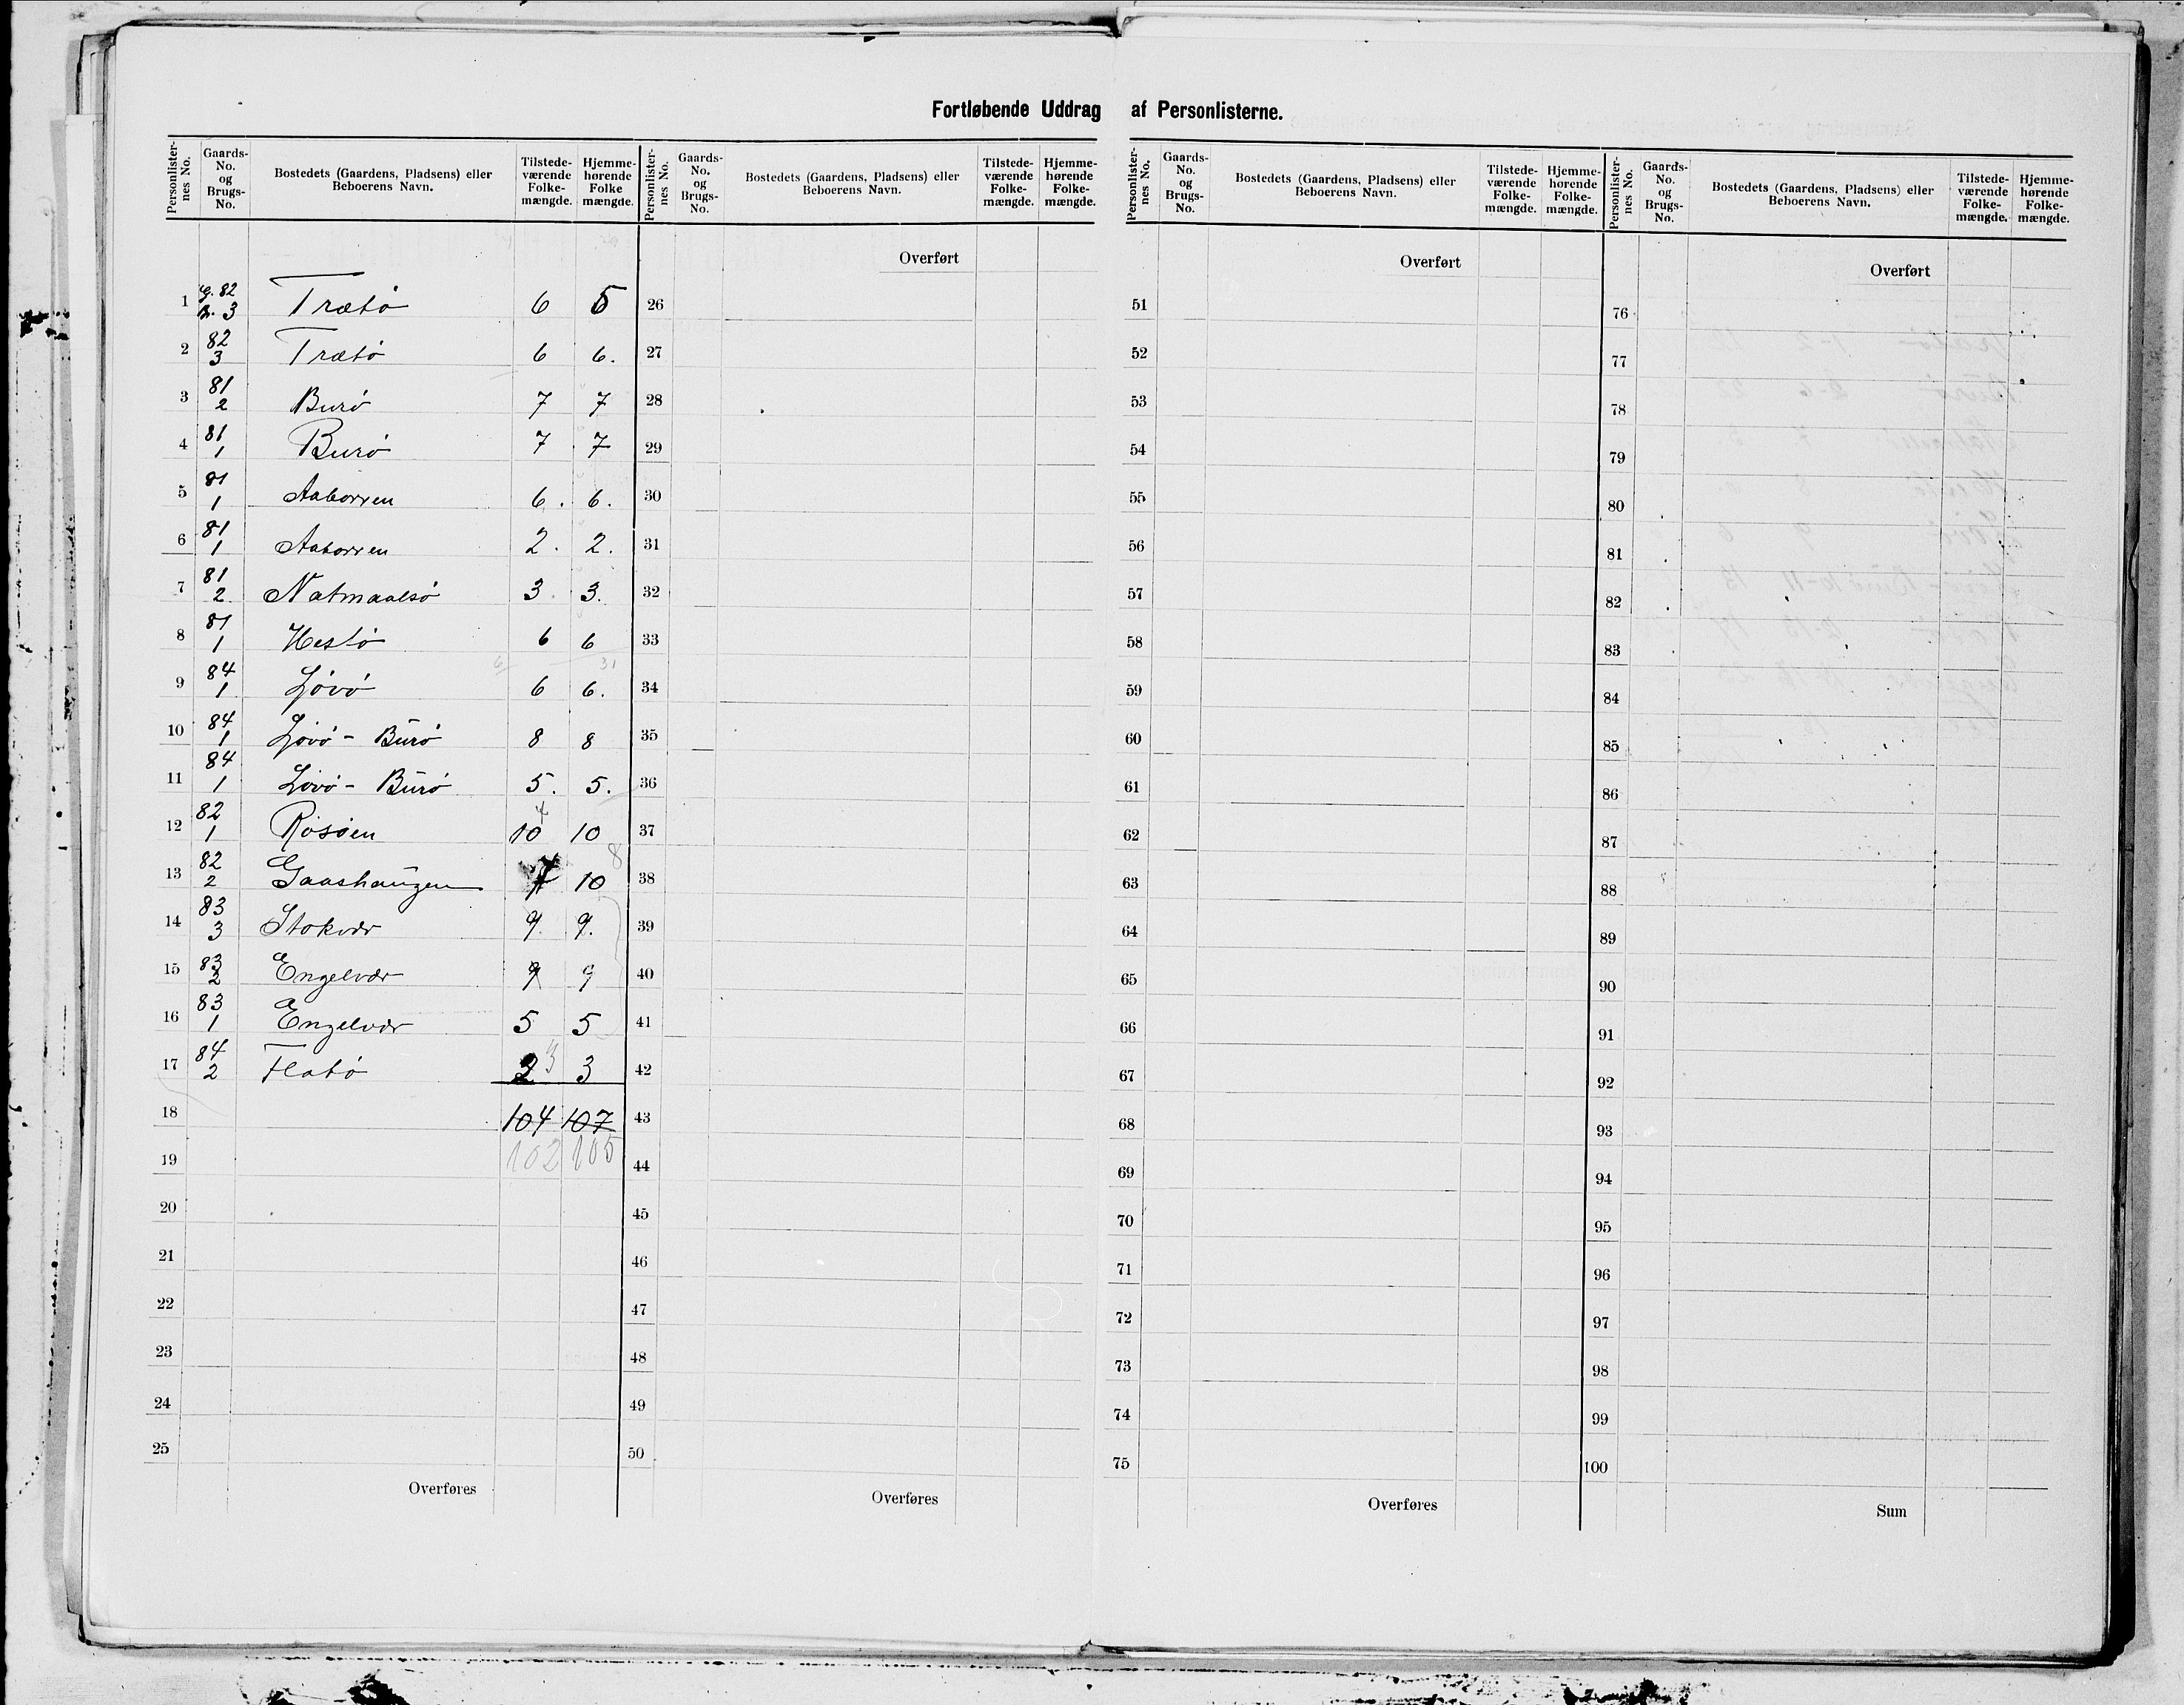 Fortløbende Uddrag af Personlisterne.
Personlister-nes No. | Gaards-No. og Brugs-No. | Bostedets (Gaardens, Pladsens) eller Beboerens Navn. | Tilstede-værende Folke-mængde. | Hjemme-hørende Folke mængde.
Personlister-nes No. | Gaards-No. og Brugs-No. | Bostedets (Gaardens, Pladsens) eller Beboerens Navn. | Tilstede-værende Folke-mængde. | Hjemme-hørende Folke-mængde.
Personlister-nes No. | Gaards-No. og Brugs-No. | Bostedets (Gaardens, Pladsens) eller Beboerens Navn. | Tilstede-værende Folke-mængde. | Hjemme-hørende Folke-mængde.
Personlister-nes No. | Gaards-No. og Brugs-No. | Bostedets (Gaardens, Pladsens) eller Beboerens Navn. | Tilstede-værende Folke-mængde. | Hjemme-hørende Folke-mængde.
1 G. 82 B. 3 Trætø 6 5
2 82 3 Trætø 6 6.
3 81 2 Burø 7 7
4 81 1 Burø 7 7
5 81 1 Aaborren 6. 6.
6 81 1 Aaborren 2. 2.
7 81 2 Natmaalsø 3. 3.
8 81 1 Hestø 6 6
9 84 1 Løvø 6 6.
10 84 1 Løvø - Burø 8 8
11 84 1 Løvø - Burø 5. 5.
12 82 1 Rosøen 10 10
13 82 2 Gaashaugen 7 10
14 83 3 Stokvær 9. 9.
15 83 2 Engelvær 9 9
16 83 1 Engelvær 5 5
17 84 2 Flatø 2 3 3
18 104 107
19 102 105
20
21
22
23
24
25
Overføres
Overført
26
27
28
29
30
31
32
33
34
35
36
37
38
39
40
41
42
43
44
45
46
47
48
49
50
Overføres
Overført
51
52
53
54
55
56
57
58
59
60
61
62
63
64
65
66
67
68
69
70
71
72
73
74
75
Overføres
Overført
76
77
78
79
80
81
82
83
84
85
86
87
88
89
90
91
92
93
94
95
96
97
98
99
100
Sum